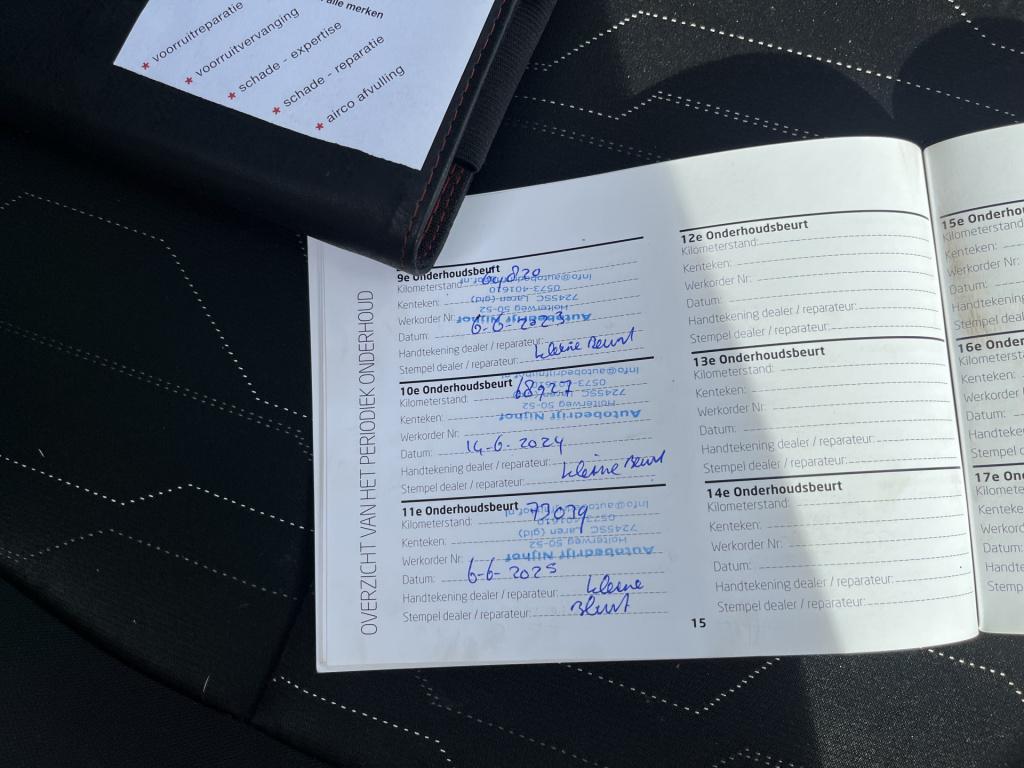 alle merken
★ voorruitreparatie
★ voorruitvervanging
★ schade - expertise
★ schade - reparatie
★ airco afvulling
OVERZICHT VAN HET PERIODIEK ONDERHOUD
9e Onderhoudsbeurt
Kilometerstand:
Kenteken:
Werkorder Nr:
Datum: 6-6-2023
Handtekening dealer / reparateur:
Stempel dealer / reparateur: kleine Beurt
Autobedrijf Nijhof
Holterweg 50-52
7245SC Laren (gld)
0573-401610
info@autobedrijfnijhof.nl
10e Onderhoudsbeurt
Kilometerstand: 68927
Kenteken:
Werkorder Nr:
Datum: 14-6-2024
Handtekening dealer / reparateur:
Stempel dealer / reparateur: kleine Beurt
Autobedrijf Nijhof
Holterweg 50-52
7245SC Laren (gld)
0573-401610
info@autobedrijfnijhof.nl
11e Onderhoudsbeurt
Kilometerstand: 73079
Kenteken:
Werkorder Nr:
Datum: 6-6-2025
Handtekening dealer / reparateur: kleine
Stempel dealer / reparateur: Beurt
Autobedrijf Nijhof
Holterweg 50-52
7245SC Laren (gld)
0573-401610
info@autobedrijfnijhof.nl
12e Onderhoudsbeurt
Kilometerstand:
Kenteken:
Werkorder Nr:
Datum:
Handtekening dealer / reparateur:
Stempel dealer / reparateur:
13e Onderhoudsbeurt
Kilometerstand:
Kenteken:
Werkorder Nr:
Datum:
Handtekening dealer / reparateur:
Stempel dealer / reparateur:
14e Onderhoudsbeurt
Kilometerstand:
Kenteken:
Werkorder Nr:
Datum:
Handtekening dealer / reparateur:
Stempel dealer / reparateur:
15
15e Onderhou
Kilometerstand:
Kenteken:
Werkorder Nr:
Datum:
Handtekening
Stempel deale
16e Onder
Kilometerst
Kenteken:
Werkorder
Datum:
Handteke
Stempel
17e On
Kilomete
Kenteke
Werkor
Datum:
Handte
Stemp